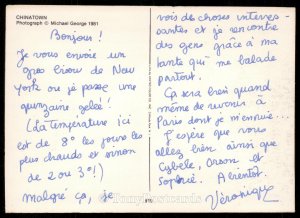 CHINATOWN
Photograph © Michael George 1981
Bonjour!
Je vous envoie un
gros bisou de New
York où je passe une
quinzaine gelée!
(La température ici
est de 8° les jours les
plus chauds et sinon
de 2 ou 3°!)
Malgré ça, je
vois des choses intéres-
santes et je rencontre
des gens grâce à ma
tante qui me balade
partout.
Ça sera bien quand
même de revenir à
Paris dont je m'ennuie...
J'espère que vous
allez bien ainsi que
Cybèle, et
A bientôt
Véronique